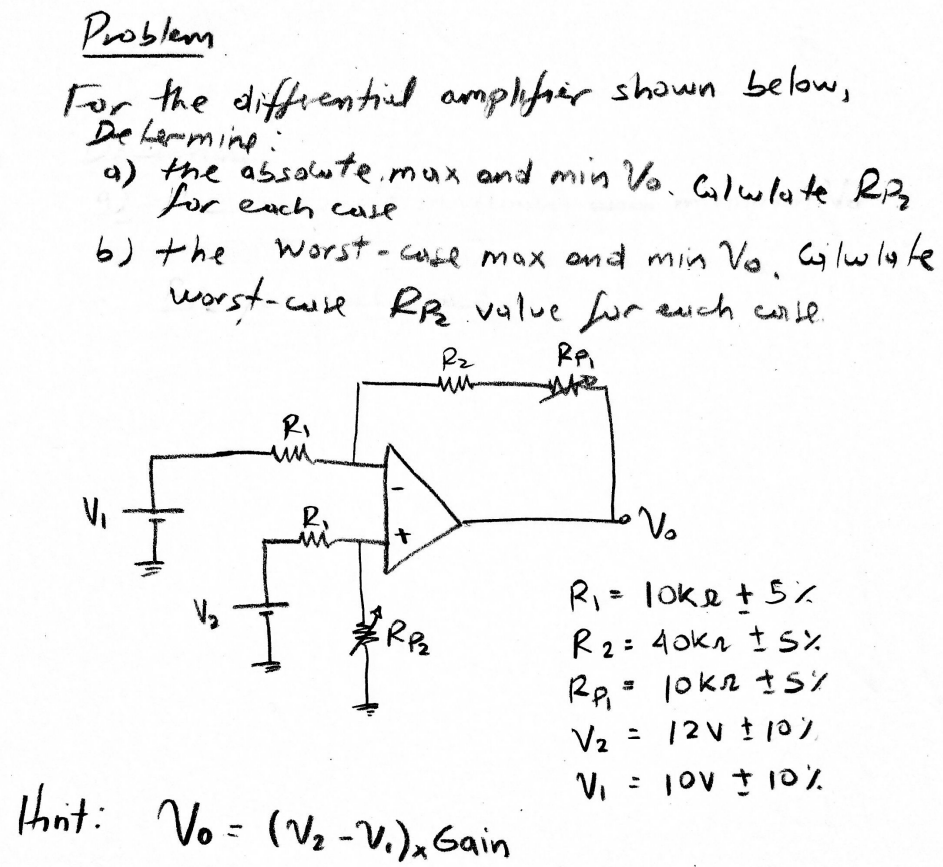 Problem
For the diffrential amplifier shown below,
Determine:
a) the absolute max and min Vo. Calculate RP2
for each case
b) the worst-case max and min Vo. Calculate
worst-case RP2 value for each case.
R2
RP1
R1
V1
-
R1
+
Vo
V2
RP2
R1 = 10kΩ ± 5%
R2 = 40kΩ ± 5%
RP1 = 10kΩ ± 5%
V2 = 12V ± 10%
V1 = 10V ± 10%
Hint: Vo = (V2 - V1) x Gain